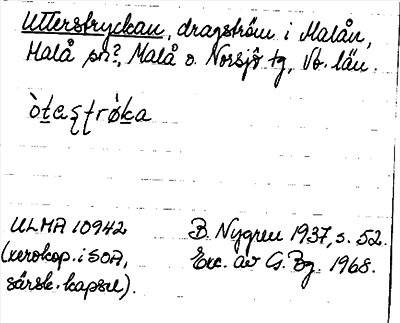 Utterstryckan, dragström i Malån,
Malå sn?, Malå o. Norsjö tg, Vb. län.
òt̲aʂʈrø̀k̲a
ULMA 10942
(xerokop. i SOA,
särsk. kapsel).
B. Nygren 1937, s. 52.
Exc. av G. Bg. 1968.